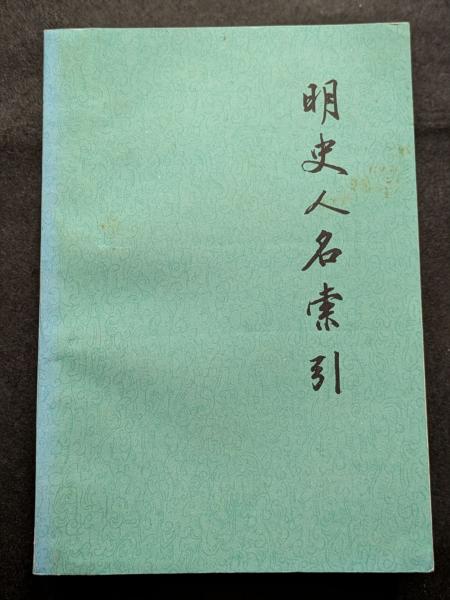 明史人名索引